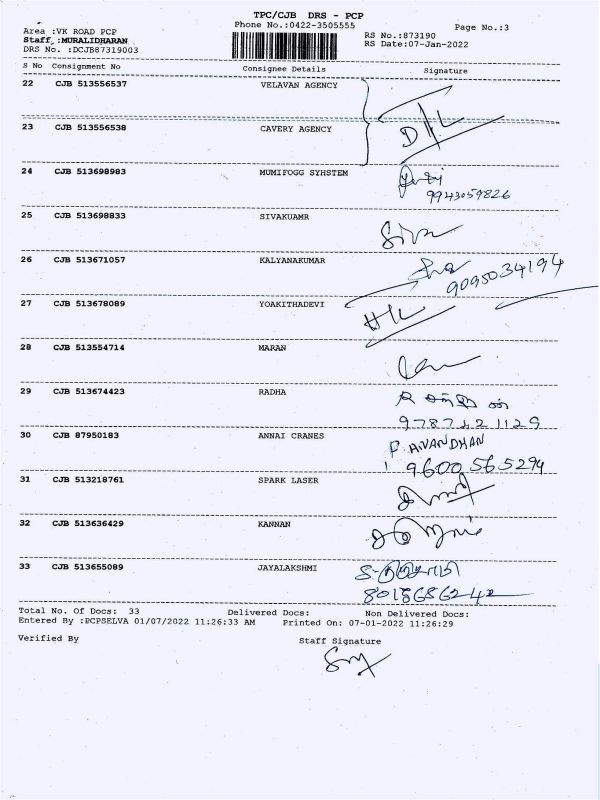 TPC/CJB DRS - PCP
Phone No.:0422-3505555
Page No.:3
Area :VK ROAD PCP
Staff :MURALIDHARAN
DRS No. :DCJB87319003
RS No.:873190
RS Date:07-Jan-2022
S No Consignment No Consignee Details Signature
22 CJB 513556537 VELAVAN AGENCY
23 CJB 513556538 CAVERY AGENCY
24 CJB 513698983 MUMIFOGG SYHSTEM
9943059826
25 CJB 513698833 SIVAKUAMR
Siva
26 CJB 513671057 KALYANAKUMAR
9095034194
27 CJB 513678089 YOAKITHADEVI
28 CJB 513554714 MARAN
29 CJB 513674423 RADHA
30 CJB 87950183 ANNAI CRANES
P. ANANDHAN
9600565294
31 CJB 513218761 SPARK LASER
32 CJB 513636429 KANNAN
33 CJB 513655089 JAYALAKSHMI
Total No. Of Docs: 33 Delivered Docs: Non Delivered Docs:
Entered By :PCPSELVA 01/07/2022 11:26:33 AM Printed On: 07-01-2022 11:26:29
Verified By Staff Signature